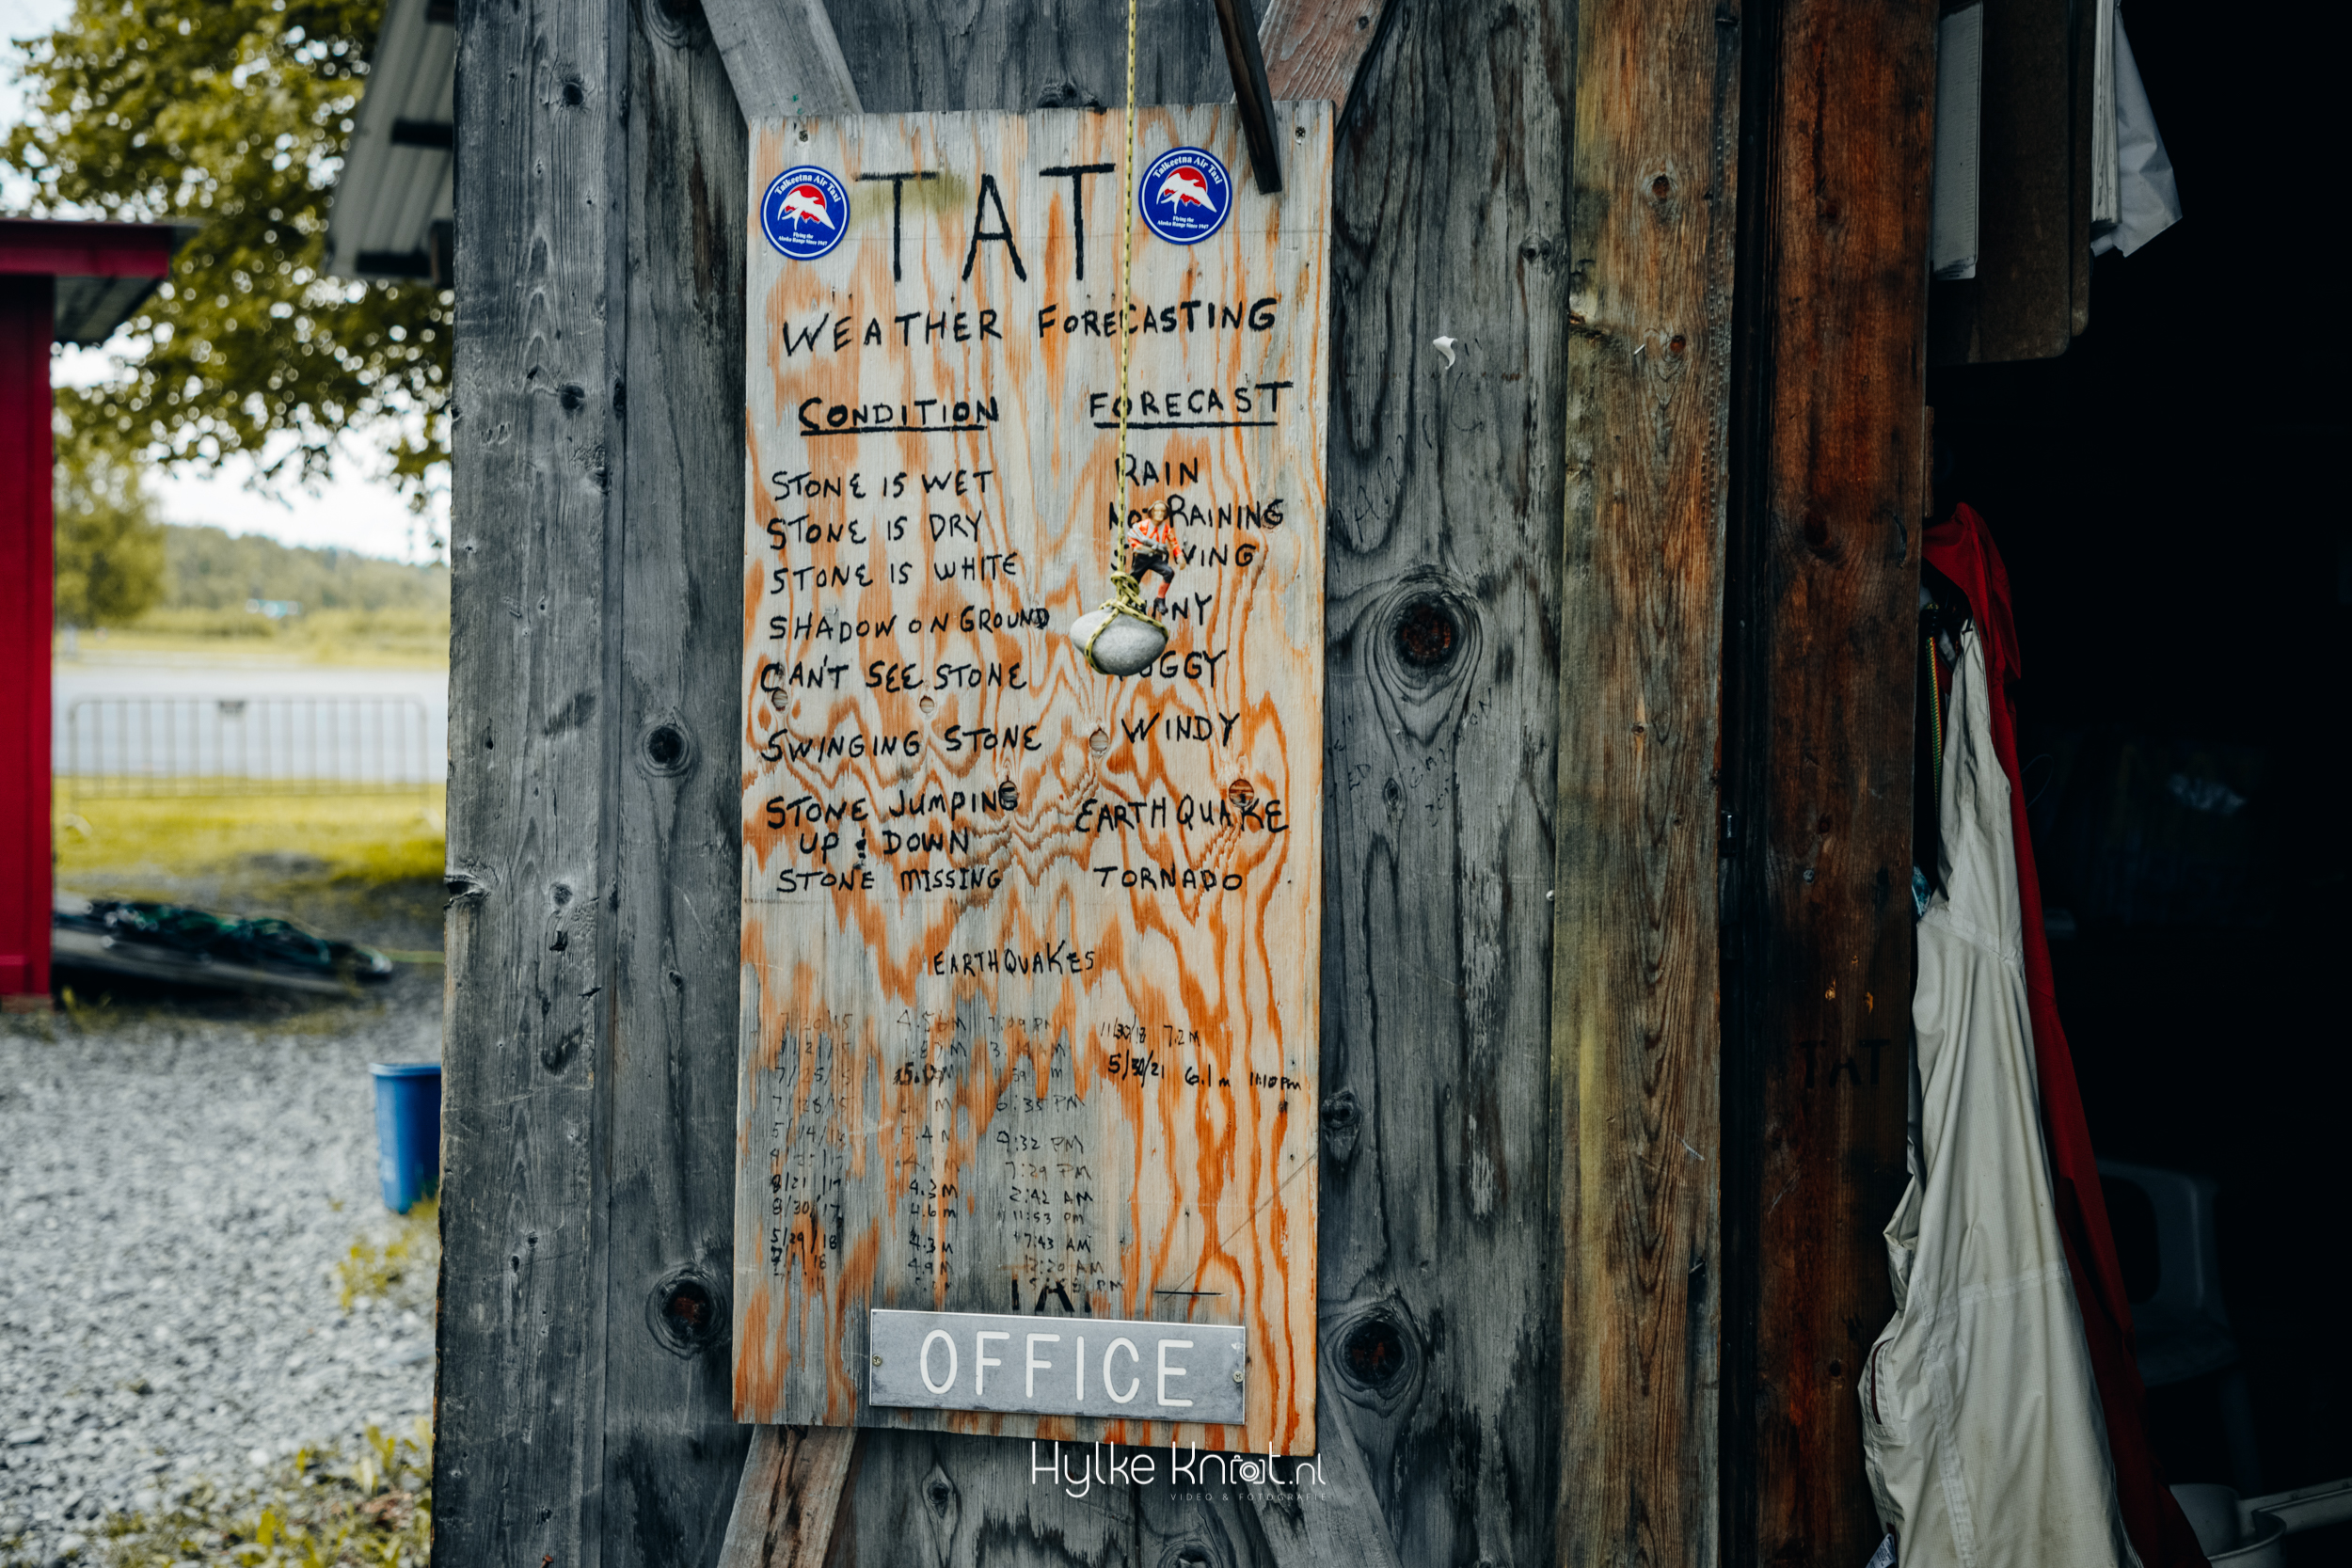 Talkeetna Air Taxi
Flying the
Alaska Range Since 1947
TAT
Talkeetna Air Taxi
Flying the
Alaska Range Since 1947
WEATHER FORECASTING
CONDITION FORECAST
STONE IS WET RAIN
STONE IS DRY NOT RAINING
STONE IS WHITE
SHADOW ON GROUND
CAN'T SEE STONE
SWINGING STONE WINDY
STONE JUMPING EARTHQUAKE
UP & DOWN
STONE MISSING TORNADO
EARTHQUAKES
11/30/18 7.2M
5/30/21 6.1M 11:10PM
6:35 PM
4:32 PM
7:29 PM
8/21/17 4.3M 2:42 AM
8/30/17 4.6M 11:53 PM
5/29/18 4.3M 7:43 AM
4.9M 12:20 AM
TAT
OFFICE
TAT
Hylke Knot.nl
VIDEO & FOTOGRAFIE